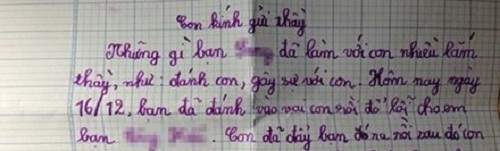 Con kính gửi thầy
Những gì bạn đã làm với con nhiều lắm
thầy, như: đánh con, gây sự với con. Hôm nay ngày
16/12, bạn đã đánh vào vai con rồi đổ lỗi cho em
bạn . Con đã đẩy bạn ra rồi sau đó con